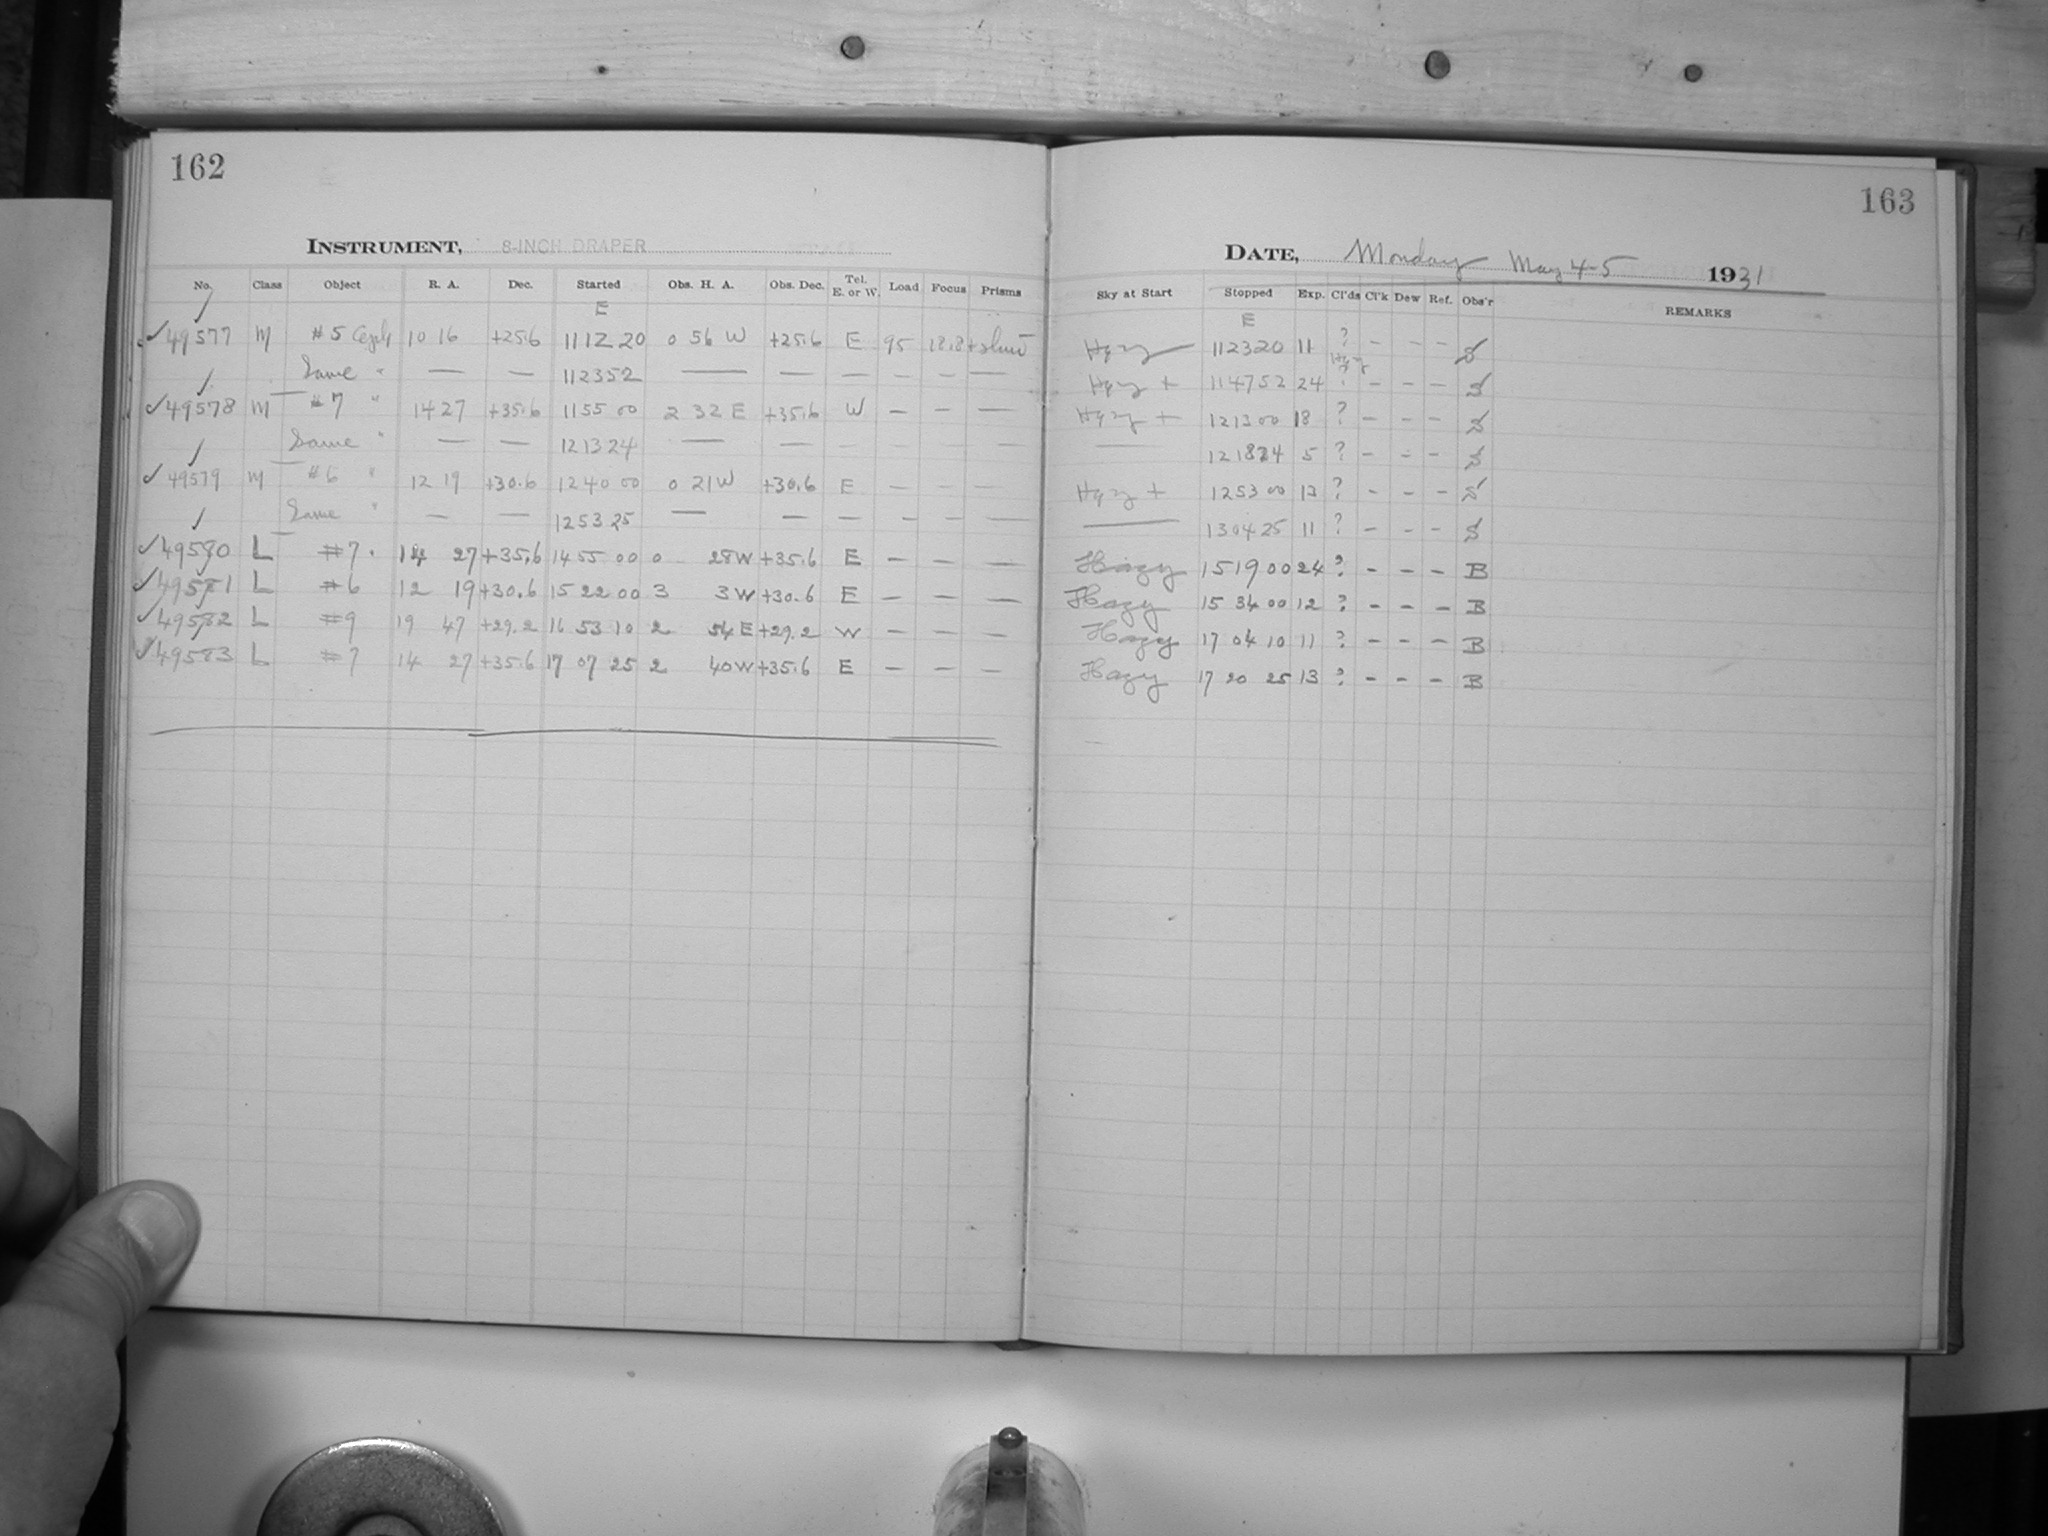 162
INSTRUMENT, 8-INCH DRAPER
No. Class Object R. A. Dec. Started Obs. H. A. Obs. Dec. Tel. E. or W. Load Focus Prisms
E
49577 M #5 10 16 +25.6 11 12 20 0 56 W +25.6 E 95
Same " — — 11 23 52 — — — — — —
49578 M #7 " 14 27 +35.6 11 55 00 2 32 E +35.6 W — — —
Same " — — 12 13 24 — — — — —
49579 M #6 " 12 19 +30.6 12 40 00 0 21 W +30.6 E — — —
Same " — — 12 53 25 — — — — — —
49580 L #7 14 27 +35.6 14 55 00 0 28 W +35.6 E — — —
49581 L #6 12 19 +30.6 15 22 00 3 3 W +30.6 E — — —
49582 L #9 19 47 +29.2 16 53 10 2 54 E +29.2 W — — —
49583 L #7 14 27 +35.6 17 07 25 2 40 W +35.6 E — — —
163
DATE, Monday May 4-5 1931
Sky at Start Stopped Exp. Cl'ds Cl'k Dew Ref. Obs'r REMARKS
E
Hazy 11 23 20 11 ? - - - S
Hazy + 11 47 52 24 ? - - - S
Hazy + 12 13 00 18 ? - - - S
— 12 18 24 5 ? - - - S
Hazy + 12 53 00 13 ? - - - S
— 13 04 25 11 ? - - - S
Hazy 15 19 00 24 ? - - - B
Hazy 15 34 00 12 ? - - - B
Hazy 17 04 10 11 ? - - - B
Hazy 17 20 25 13 ? - - - B